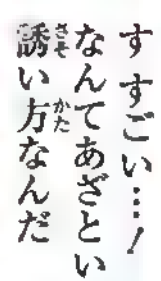 すすごい…!
なんてあざとい
誘い方なんだ